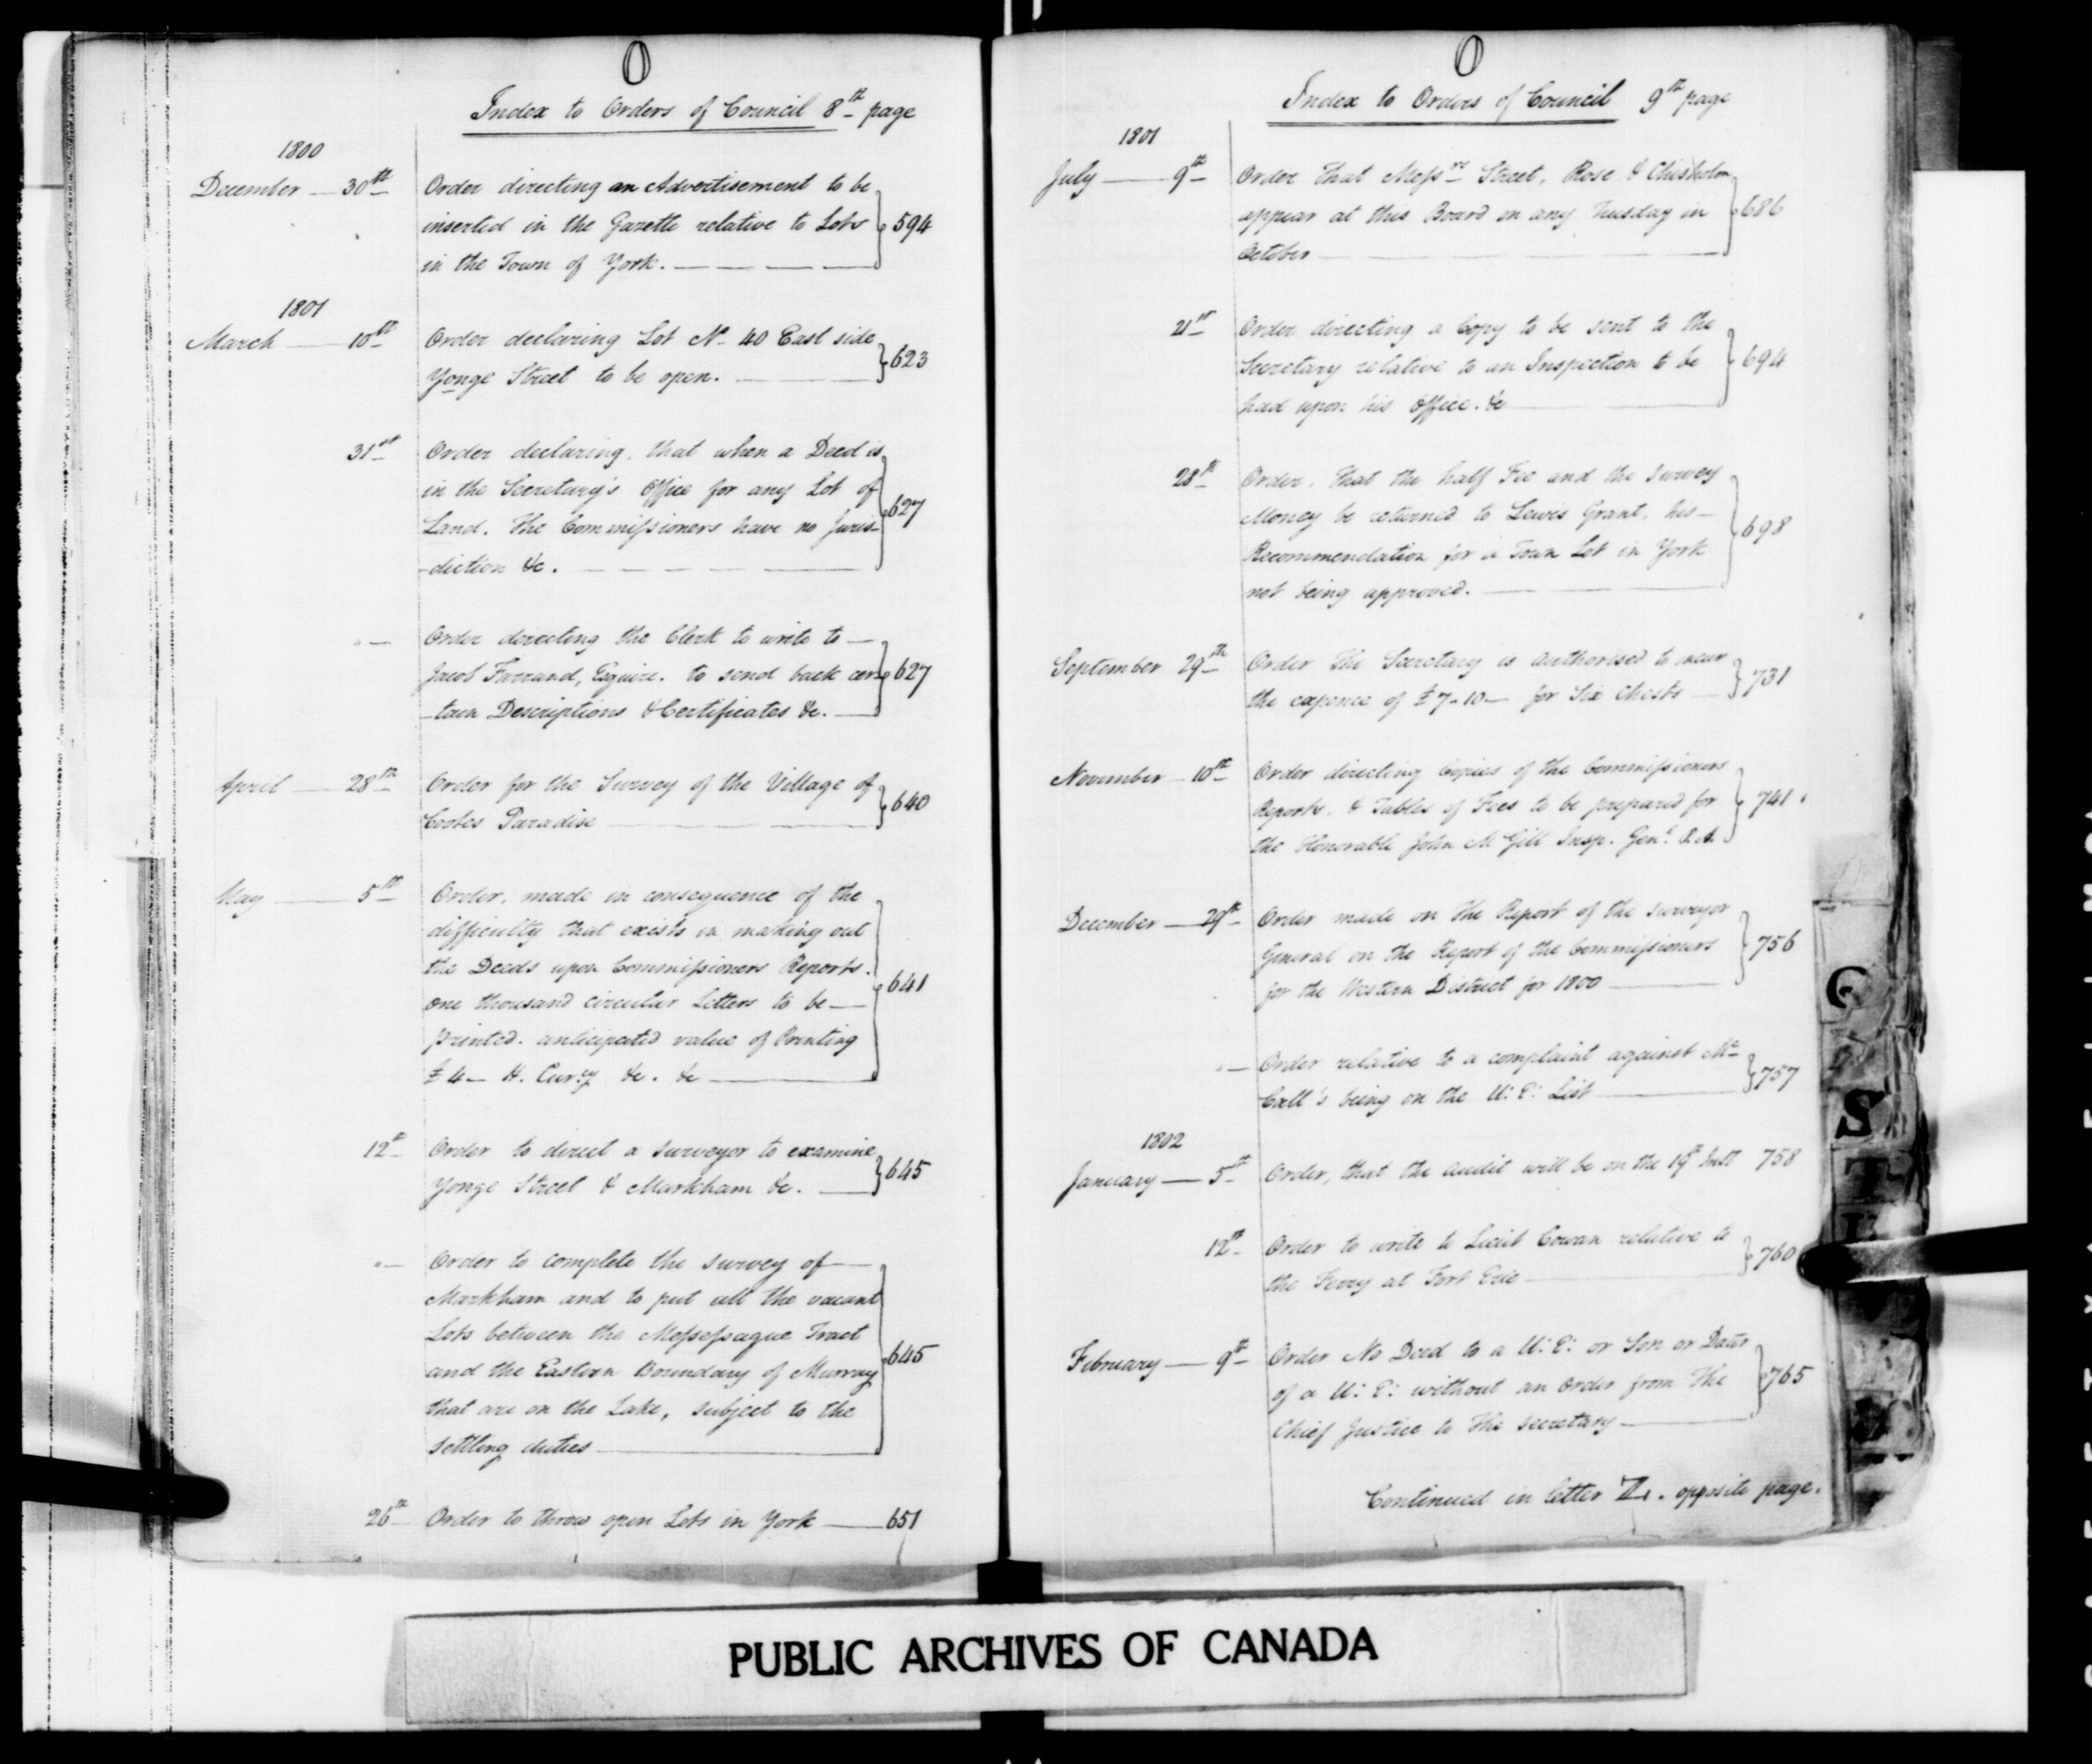 O
Index to Orders of Council 8th page
1800
December — 30th Order directing an Advertisement to be
inserted in the Gazette relative to Lots 594
in the Town of York.
1801
March — 10th Order declaring Lot No 40 East side
Yonge Street to be open. 623
31st Order declaring, that when a Deed is
in the Secretary's Office for any Lot of
Land. The Commissioners have no Juris- 627
-diction &c.
" — Order directing the Clerk to write to —
Jacob Farrand, Esquire. to send back cer- 627
-tain Descriptions & Certificates &c.
April — 28th Order for the Survey of the Village of
Cootes Paradise 640
May — 5th Order, made in consequence of the
difficulty that exists in making out
the Deeds upon Commissioners Reports.
one thousand circular Letters to be — 641
printed. anticipated value of Printing
£4 — H. Curcy &c. &c
12th Order to direct a surveyor to examine
Yonge Street & Markham &c. 645
" — Order to complete the survey of —
Markham and to put all the vacant
Lots between the Messessague Tract
and the Eastern Boundary of Murray 645
that are on the Lake, subject to the
settling duties
26th Order to throw open Lots in York — 651
O
Index to Orders of Council 9th page
1801
July — 9th Order that Messrs Street, Rose & Chisholm
appear at this Board on any Tuesday in 686
October
21st Order directing a Copy to be sent to the
Secretary relative to an Inspection to be 694
had upon his Office. &c
28th Order, that the half Fee and the survey
Money be returned to Lewis Grant, his —
Recommendation for a Town Lot in York 698
not being approved.
September 29th Order The Secretary is authorised to incur
the expence of £7-10 — for Six Chests — 731
November — 10th Order directing Copies of the Commissioners
Reports. & Tables of Fees to be prepared for 741
the Honorable John McGill Insp. Genl. P. A.
December — 29th Order made on the Report of the surveyor
General on the Report of the Commissioners 756
for the Western District for 1800
" — Order relative to a complaint against Mc
Call's being on the U: E: List 757
1802
January — 5th Order, that the audit will be on the 19th Inst 758
12th Order to write to Lieut Cowan relative to
the Ferry at Fort Erie 760
February — 9th Order No Deed to a U: E: or Son or Datr
of a U: E: without an order from the 765
Chief Justice to the secretary —
Continued in letter Z. opposite page.
Q
S
T
PUBLIC ARCHIVES OF CANADA